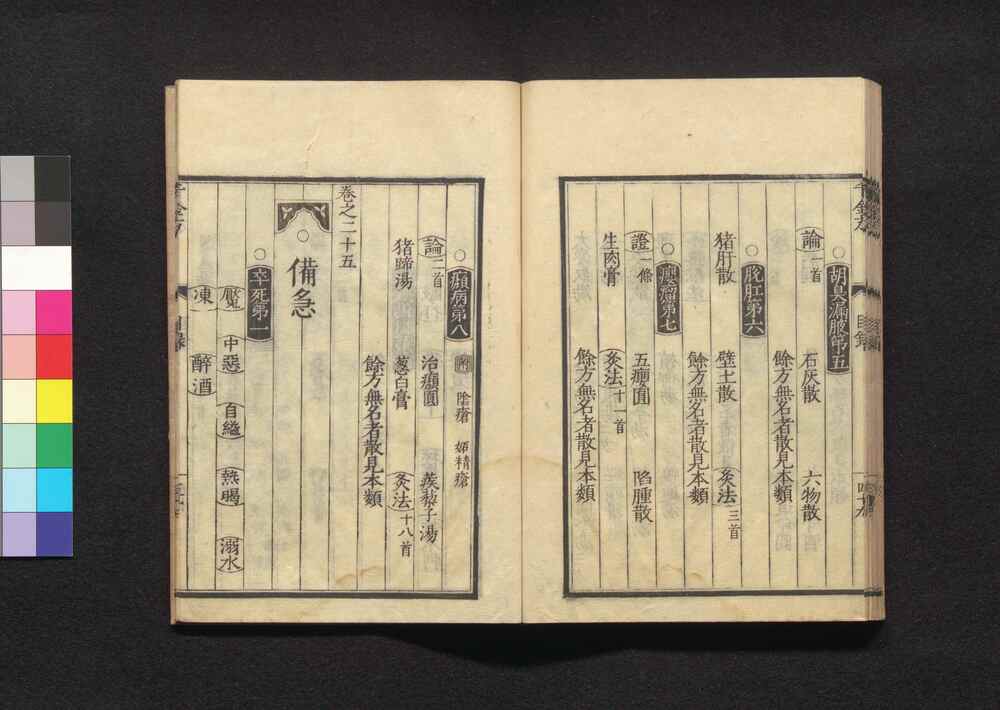 ○胡臭漏腋第五
論一首
石灰散　六物散
餘方無名者散見本類
○脫肛第六
猪肝散　壁土散　灸法三首
餘方無名者散見本類
○癭瘤第七
證一條　五癭圓　陷腫散
生肉膏　灸法十一首
餘方無名者散見本類
○㿗病第八　附　陰瘡　妬精瘡
論二首　治㿗圓　蒺蔾子湯
猪蹄湯　葱白膏　灸法十八首
餘方無名者散見本類
卷之二十五
○備急
○卒死第一
魘　中惡　自縊　熱暍　溺水
凍　醉酒